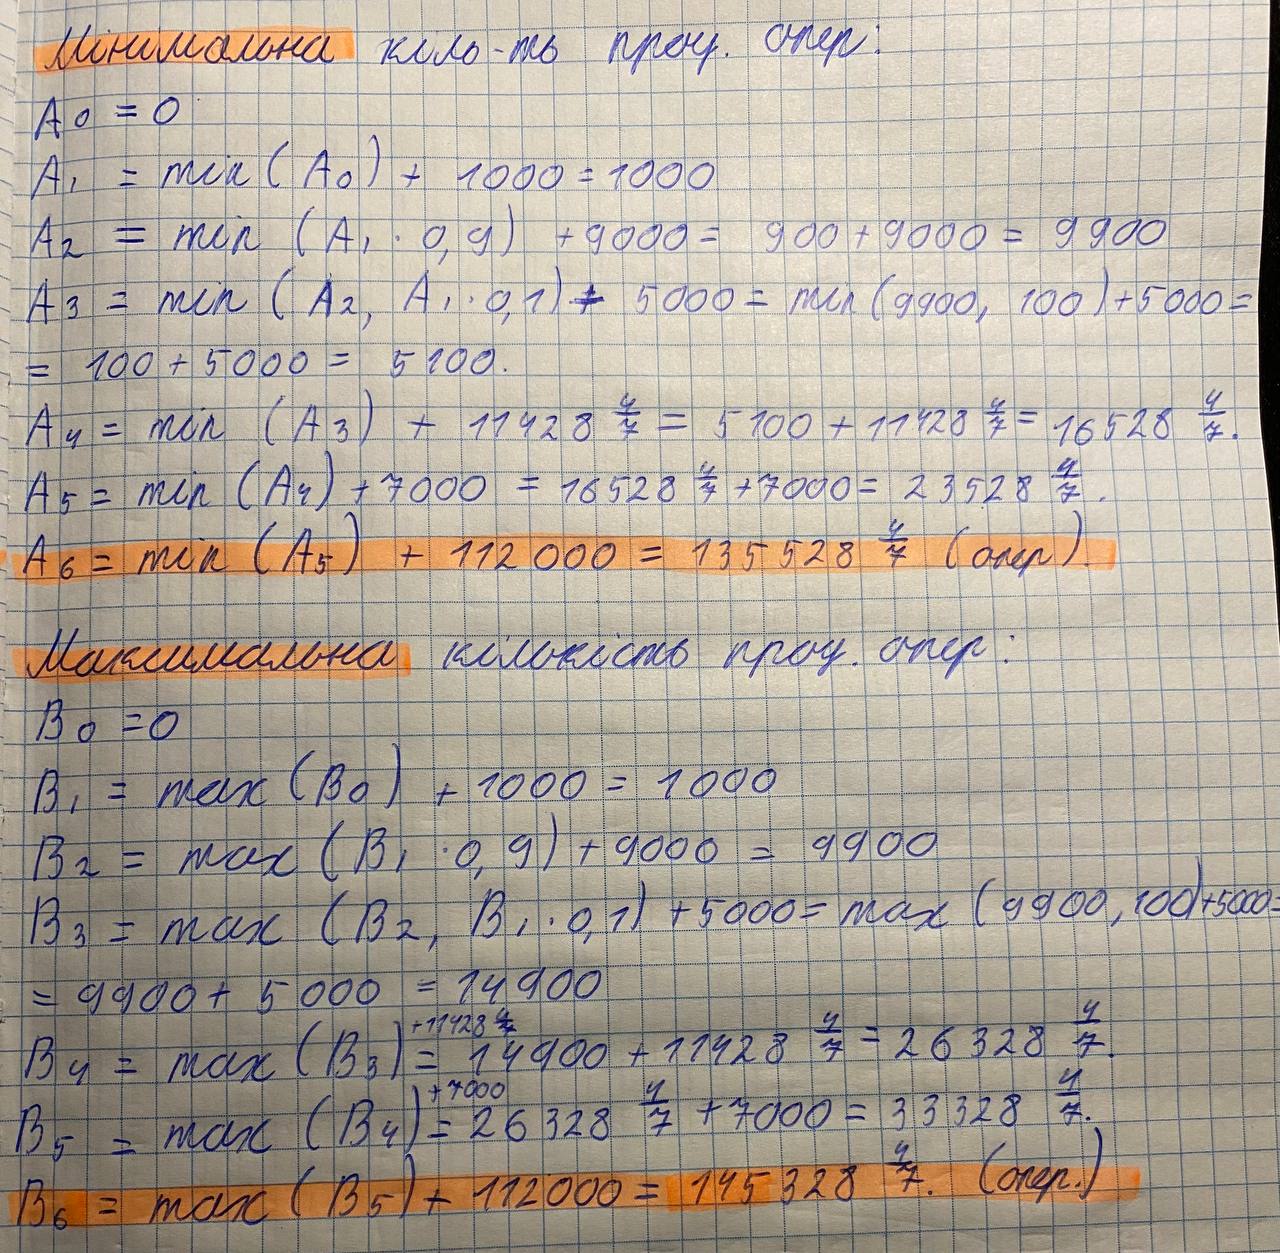 Мінімальна кіль-ть проц. опер:
A0 = 0
A1 = min (A0) + 1000 = 1000
A2 = min (A1 · 0,9) + 9000 = 900 + 9000 = 9900
A3 = min (A2, A1 · 0,1) + 5000 = min (9900, 100) + 5000 =
= 100 + 5000 = 5100.
A4 = min (A3) + 11428 4/7 = 5100 + 11428 4/7 = 16528 4/7.
A5 = min (A4) + 7000 = 16528 4/7 + 7000 = 23528 4/7.
A6 = min (A5) + 112000 = 135528 4/7 (опер).
Максимальна кількість проц. опер:
B0 = 0
B1 = max (B0) + 1000 = 1000
B2 = max (B1 · 0,9) + 9000 = 9900
B3 = max (B2, B1 · 0,1) + 5000 = max (9900, 100) + 5000 =
= 9900 + 5000 = 14900
B4 = max (B3) + 11428 4/7 = 14900 + 11428 4/7 = 26328 4/7.
B5 = max (B4) + 7000 = 26328 4/7 + 7000 = 33328 4/7.
B6 = max (B5) + 112000 = 145328 4/7. (опер.)